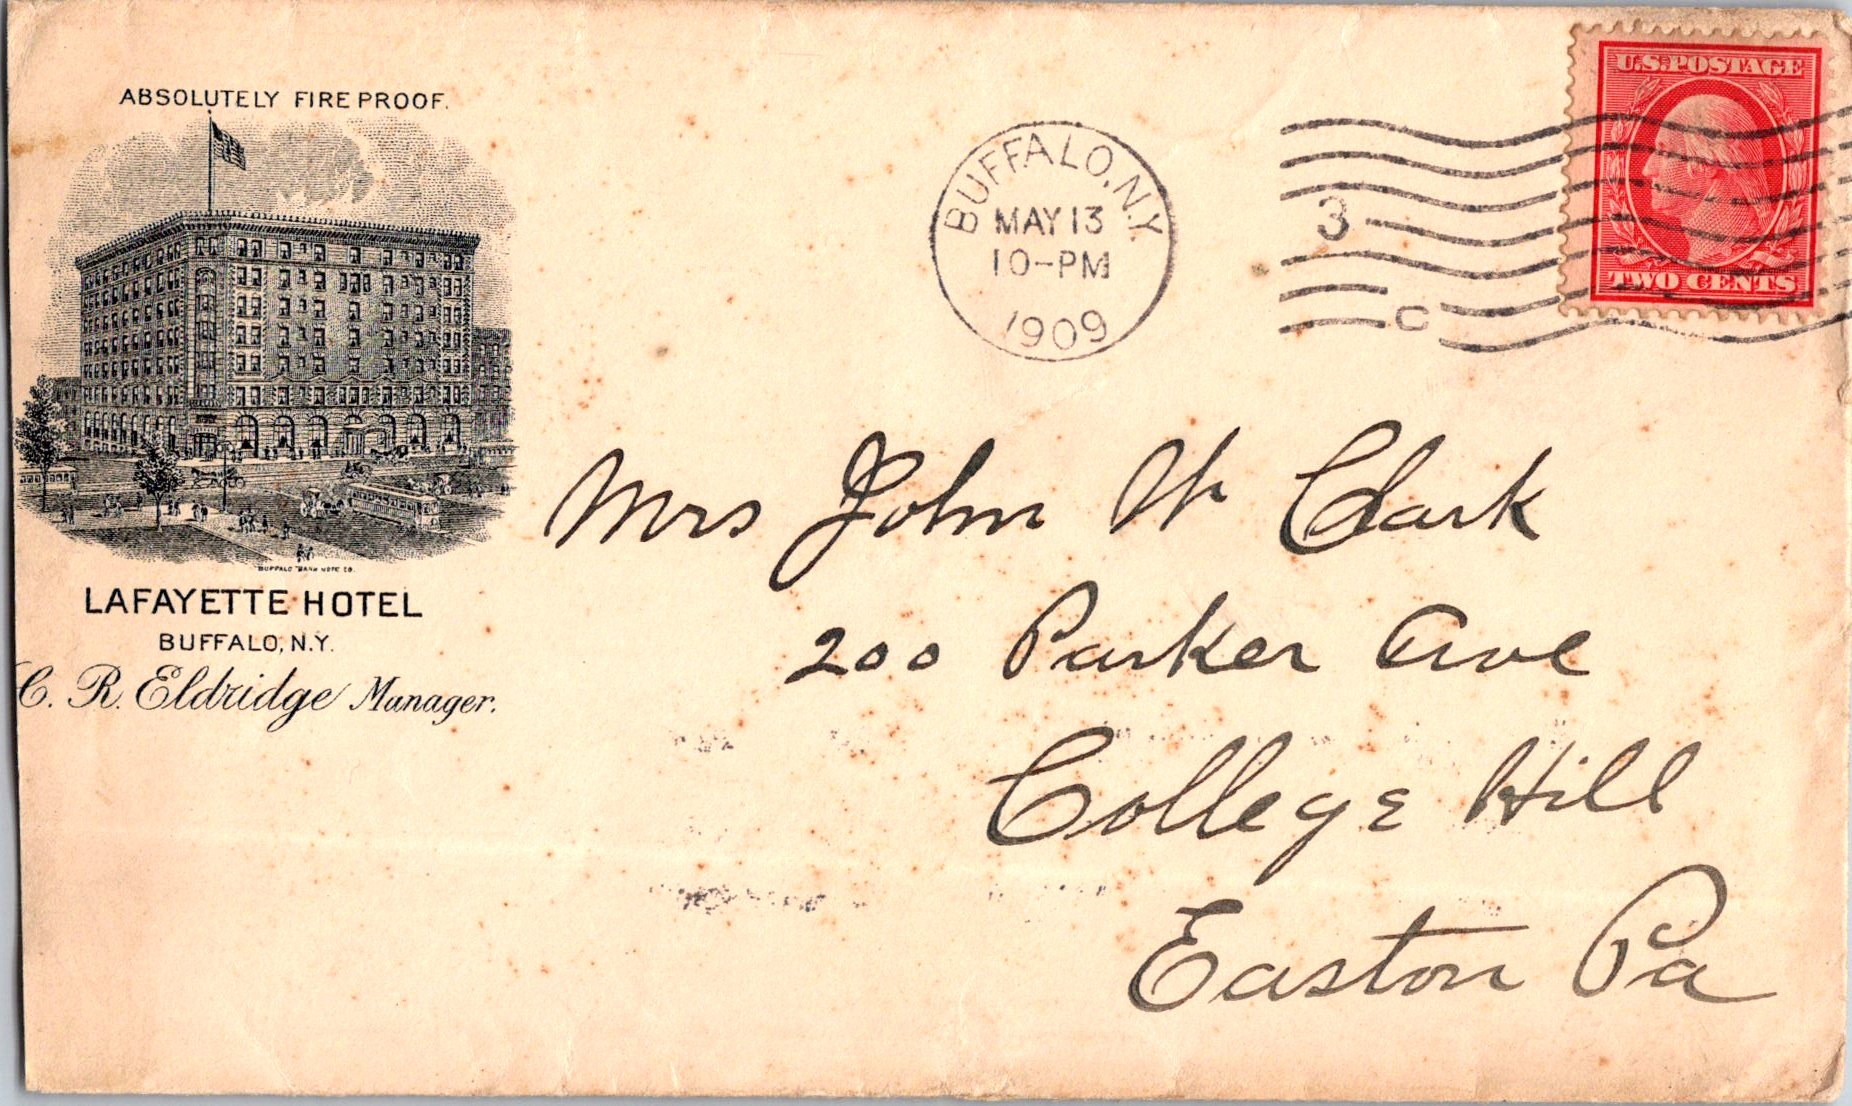 ABSOLUTELY FIREPROOF.
BUFFALO BANK NOTE CO.
LAFAYETTE HOTEL
BUFFALO, N.Y.
C. R. Eldridge Manager.
BUFFALO, N.Y.
MAY 13
10-PM
1909
3
C
U.S. POSTAGE
TWO CENTS
Mrs John W Clark
200 Parker Ave
College Hill
Easton Pa